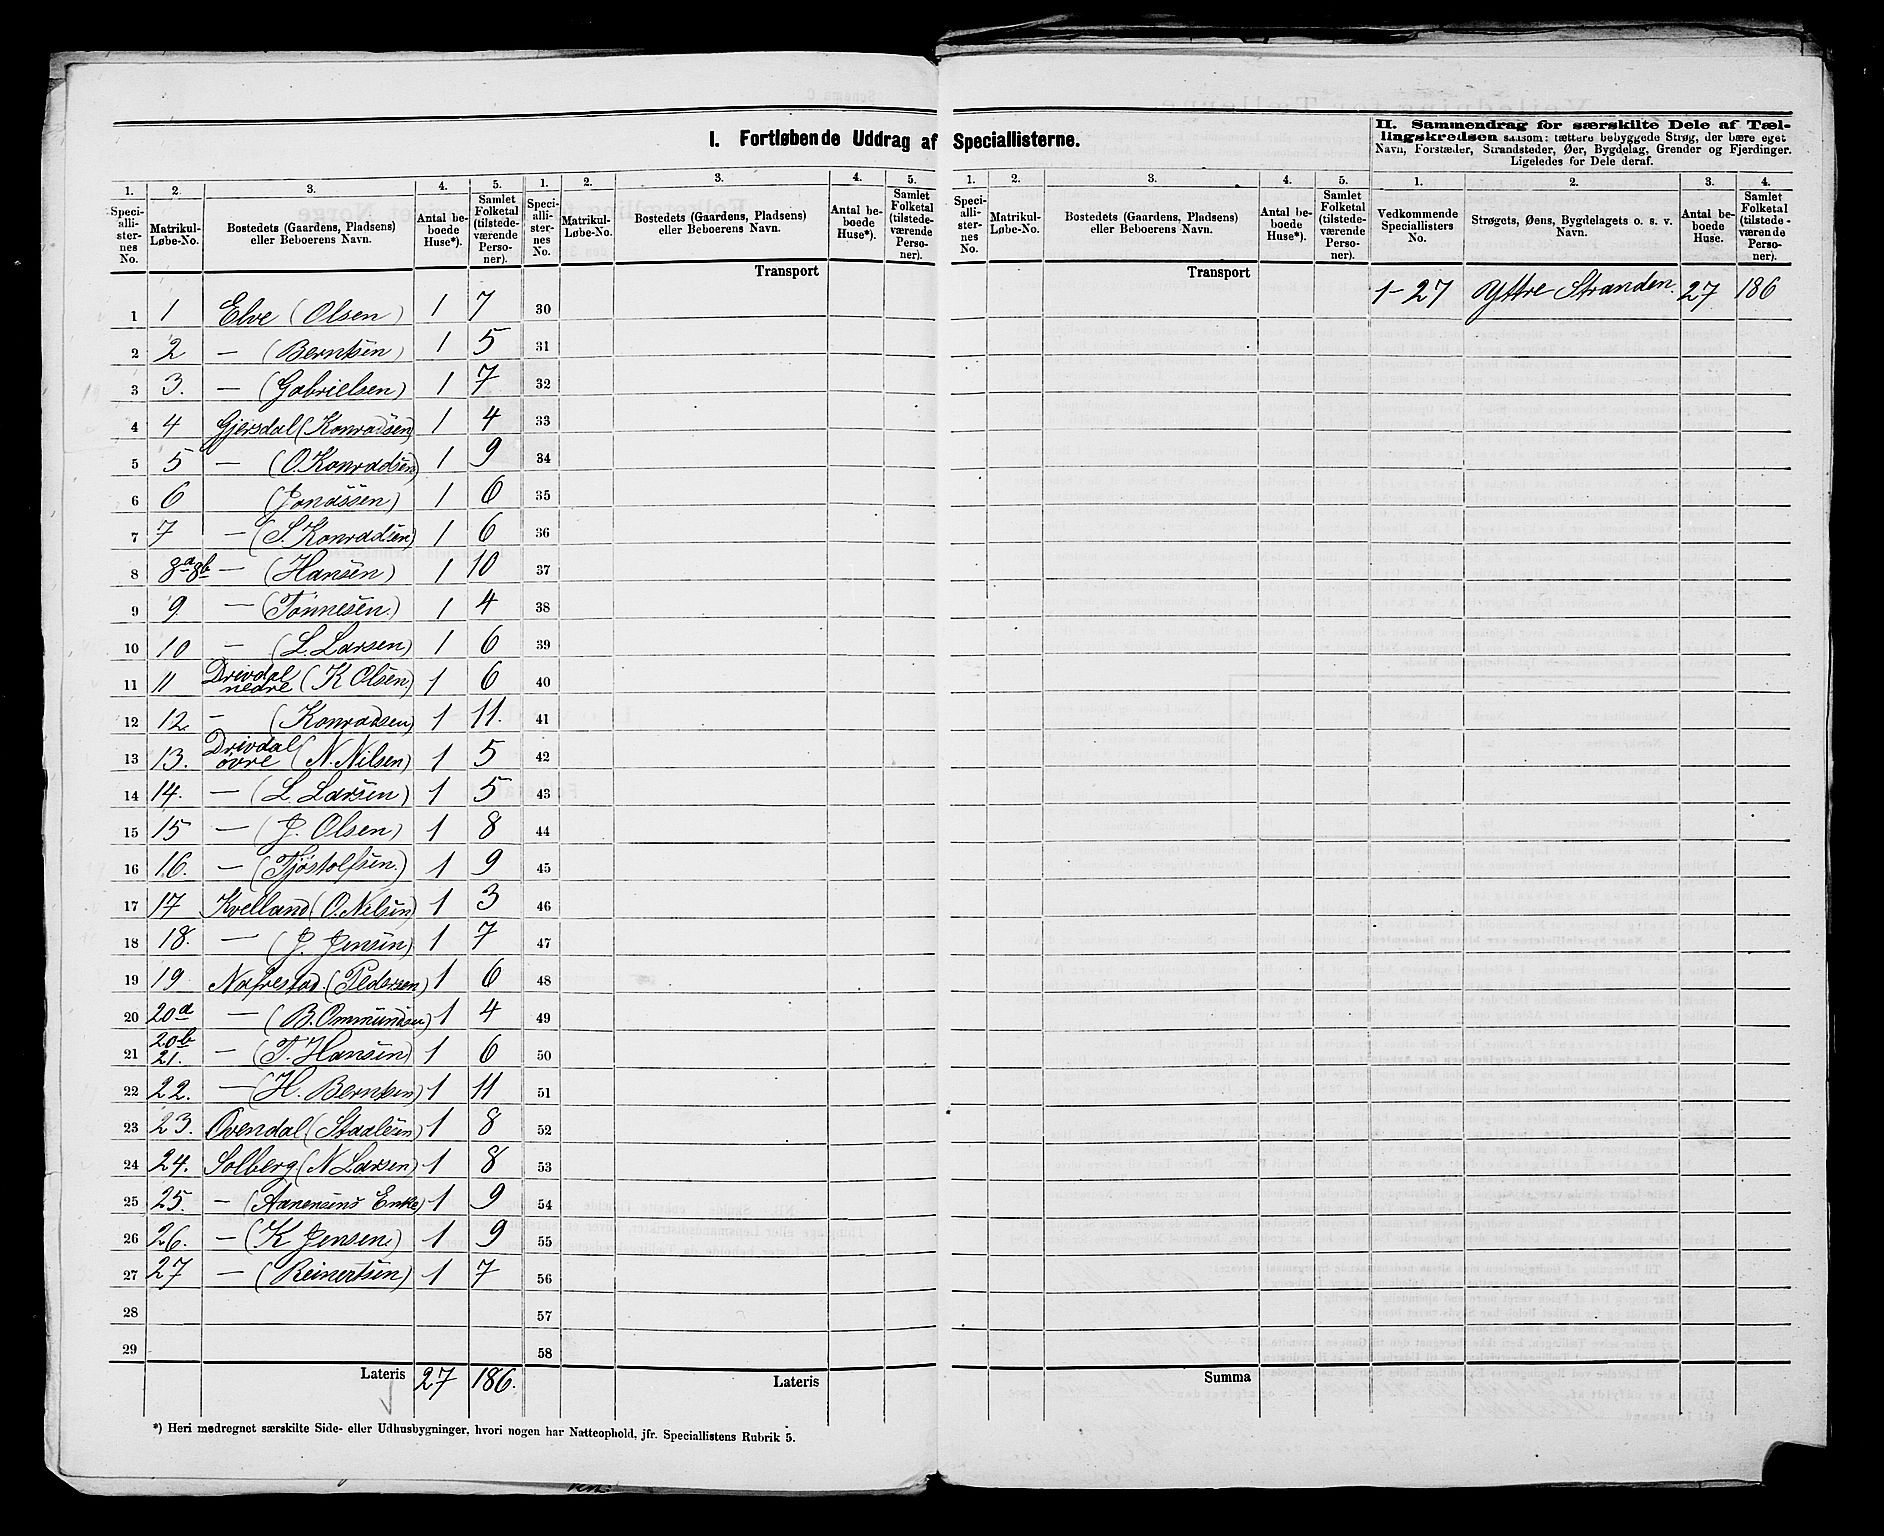 I. Fortløbende Uddrag af Speciallisterne.
II. Sammendrag for særskilte Dele af Tæl-
lingskredsen saasom: tættere bebyggede Strøg, der bære eget
Navn, Forstæder, Strandsteder, Øer, Bygdelag, Grender og Fjerdinger.
Ligeledes for Dele deraf.
1. 2. 3. 4. 5. 1. 2. 3. 4. 5. 1. 2. 3. 4. 5. 1. 2. 3. 4.
Speci-alli-ster-nes No. Matrikul-Løbe-No. Bostedets (Gaardens, Pladsens) eller Beboerens Navn. Antal be-boede Huse*). Samlet Folketal (tilstede-værende Perso-ner).
Speci-alli-ster-nes No. Matrikul-Løbe-No. Bostedets (Gaardens, Pladsens) eller Beboerens Navn. Antal be-boede Huse*). Samlet Folketal (tilstede-værende Perso-ner).
Speci-alli-ster-nes No. Matrikul-Løbe-No. Bostedets (Gaardens, Pladsens) eller Beboerens Navn. Antal be-boede Huse*). Samlet Folketal (tilstede-værende Perso-ner).
Vedkommende Speciallisters No. Strøgets, Øens, Bygdelagets o. s. v. Navn. Antal be-boede Huse. Samlet Folketal (tilstede-værende Perso-ner).
Transport Transport
1-27 Yttre Stranden. 27 186
1 1 Elve (Olsen) 1 7 30
2 2 — (Berntsen) 1 5 31
3 3. — (Gabrielsen) 1 7 32
4 4 Gjersdal (Konradsen) 1 4 33
5 5 — (O. Konradsen) 1 9 34
6 6 (Jonassen) 1 6 35
7 7 — (S. Konradsen) 1 6 36
8 8a8b — (Hansen) 1 10 37
9 9 — (Tønnesen.) 1 4 38
10 10 — (L. Larsen) 1 6 39
11 11 Drivdal nedre (K Olsen) 1 6 40
12 12 — (Konradsen) 1 11. 41
13 13. Drivdal övre (N. Nilsen) 1 5 42
14 14. — (L. Larsen) 1 5 43
15 15 — (J. Olsen) 1 8 44
16 16. — (Tjöstolfsen.) 1 9 45
17 17 Kvelland (O. Nilsen) 1 3 46
18 18. — (J. Jensen) 1 7 47
19 19 Nafrestad. (Pedersen) 1 6 48
20 20a — (B. Ommundsen) 1 4 49
21 20b 21. — (T. Hansen) 1 6 50
22 22. — (H. Berntsen) 1 11 51
23 23. Ovendal (Staalesen) 1 8 52
24 24. Solberg (N Larsen) 1 8 53
25 25. — (Aanensens Enke) 1 9 54
26 26. — (K Jensen.) 1 9 55
27 27 — (Reinertsen) 1 7 56
28 57
29 58
Lateris 27 186. Lateris Summa
*) Heri medregnet særskilte Side- eller Udhusbygninger, hvori nogen har Natteophold, jfr. Speciallistens Rubrik 5.